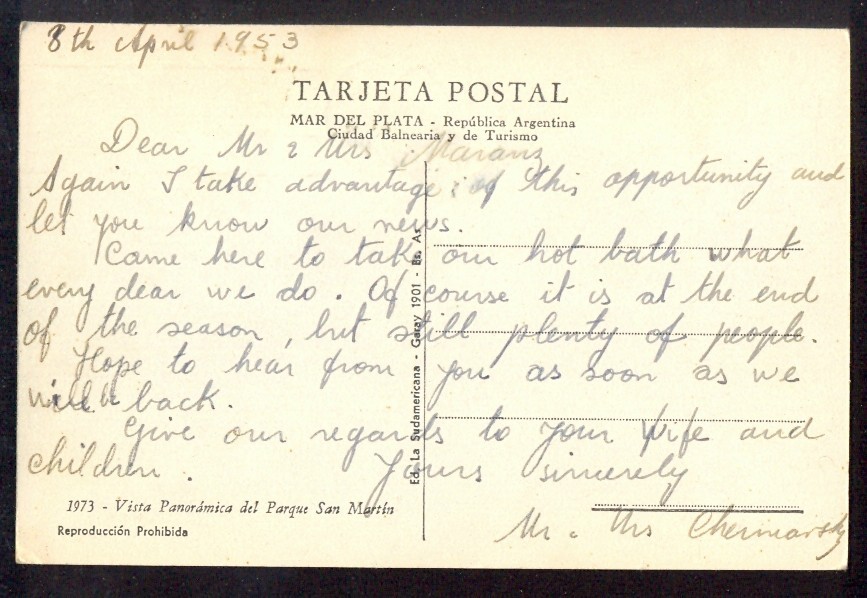 8th April 1953
TARJETA POSTAL
MAR DEL PLATA - República Argentina
Ciudad Balnearia y de Turismo
Dear Mr & Mrs Maranz
Again I take advantage of this opportunity and
let you know our news.
Came here to take our hot bath what
every dear we do. Of course it is at the end
of the season, but still plenty of people.
Hope to hear from you as soon as we
will be back.
Give our regards to your wife and
children.
Yours sincerely
Mr & Mrs Cherniavsky
Ed. La Sudamericana - Garay 1901 - Bs. As.
1973 - Vista Panorámica del Parque San Martín
Reproducción Prohibida